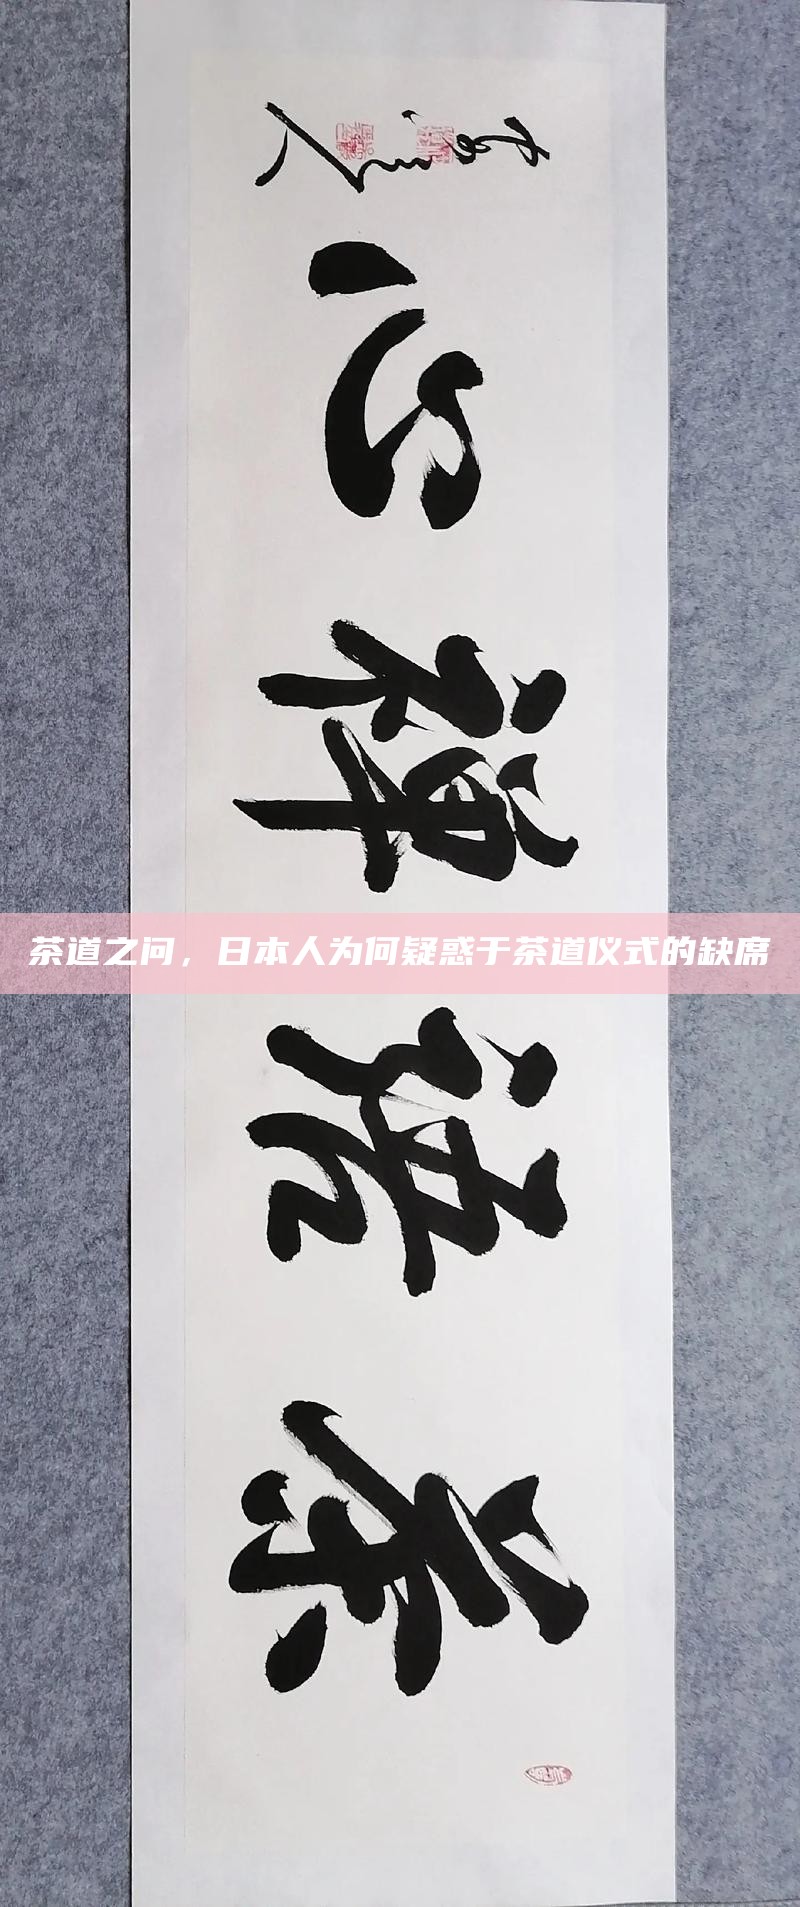 茶语禅心
茶道之问，日本人为何疑惑于茶道仪式的缺席